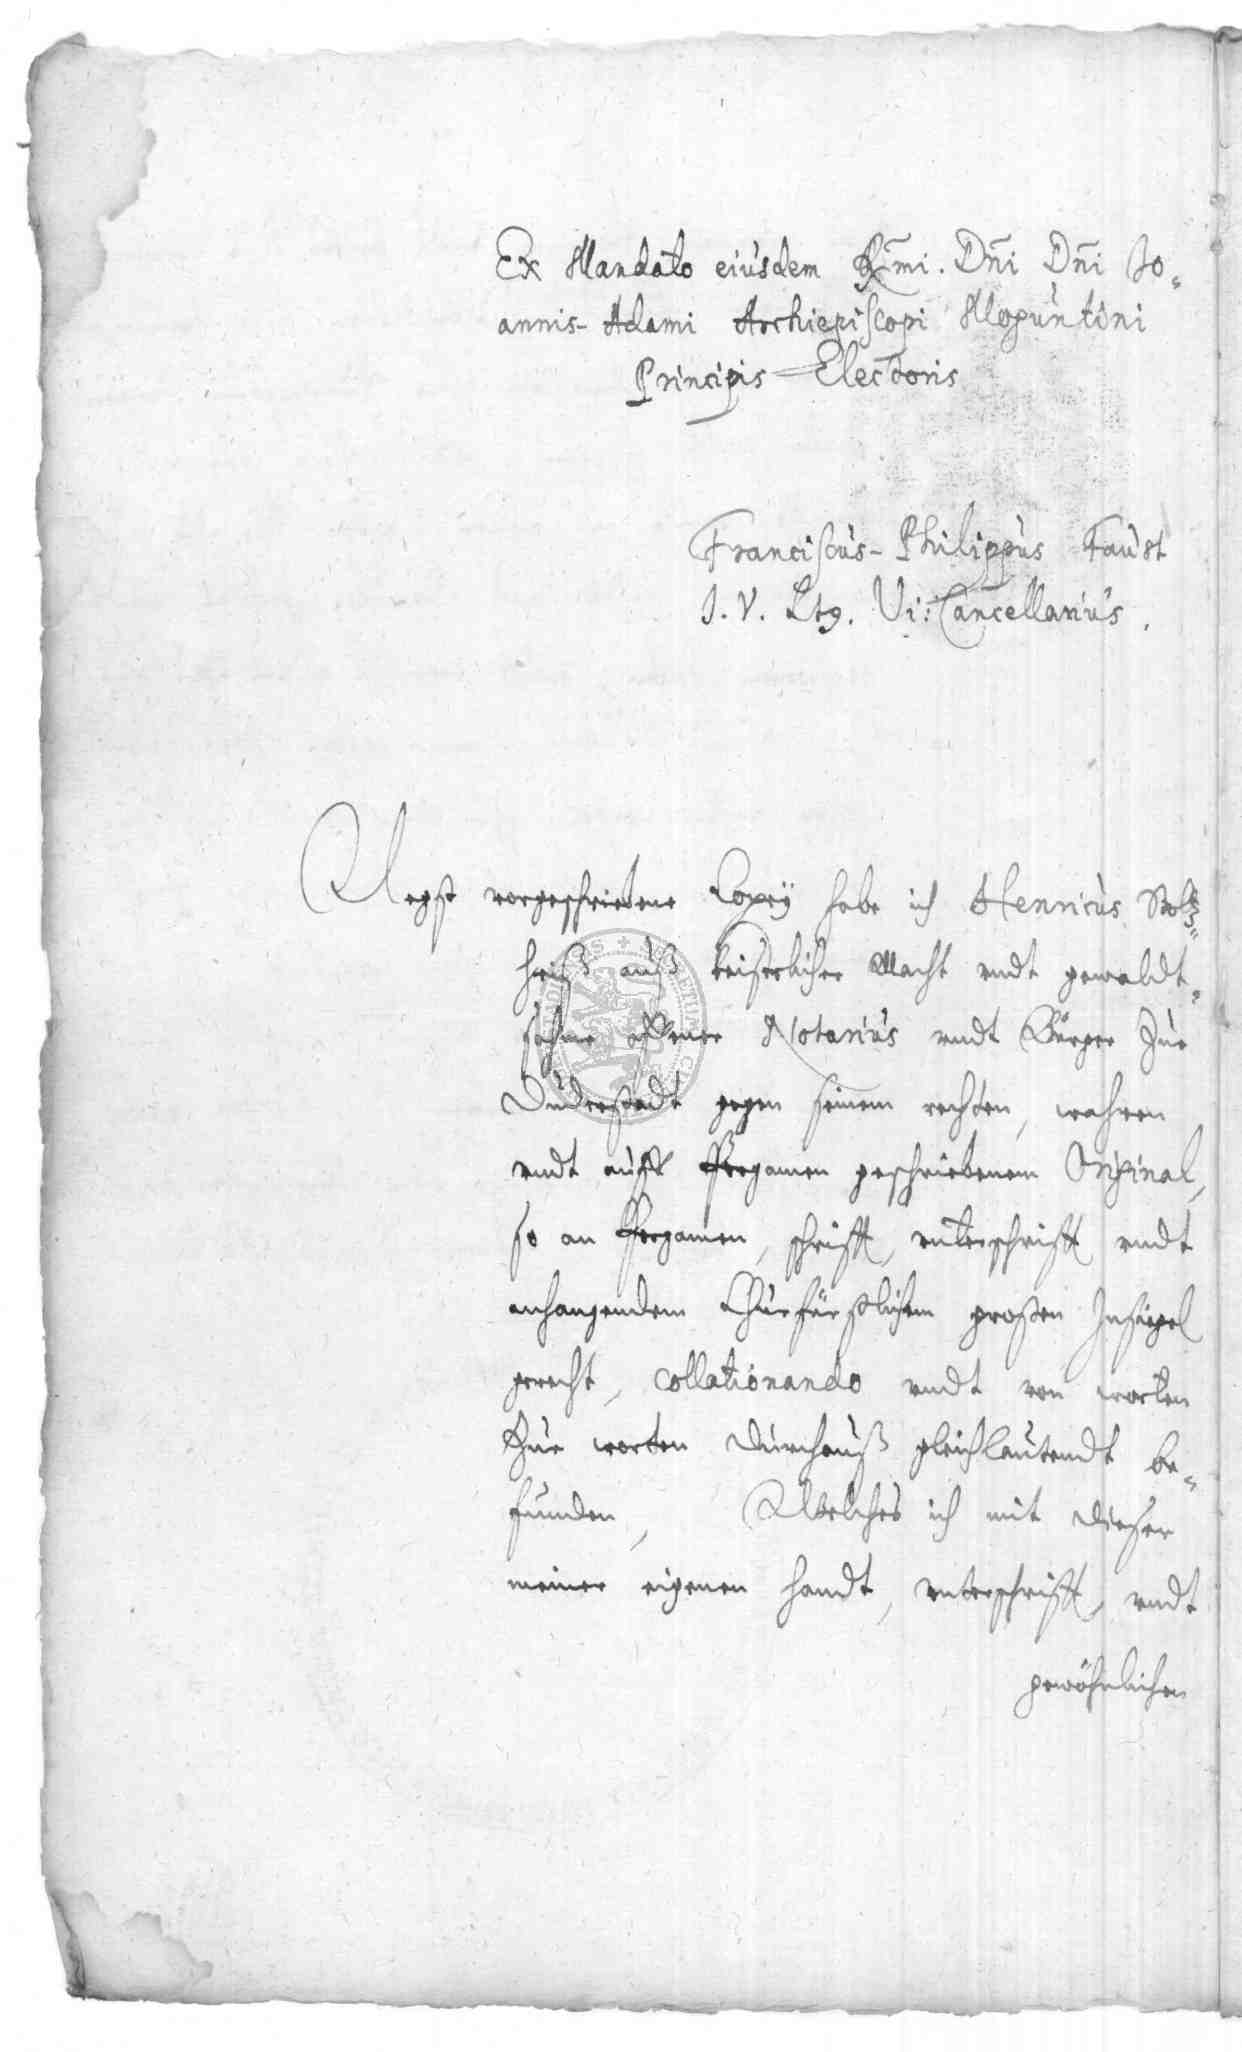 Ex Mandato eiusdem Rmi. Dni Dni Jo=
annis-Adami Archiepiscopi Moguntini
Principis Electoris
Franciscus-Philippus Faust
J. V. Ltg. Vi: Cancellarius.
vorgeschriebene Copey habe ich Henricus
auß keiserlicher Macht undt gewaldt=
offener Notarius undt Bürger zur
Duderstadt gegen seinem rechten, wahren
undt auff Pergamen geschriebenem Original,
so an Pergamen, schrifft, unterschrifft undt
anhangendem Churfürstlichem großen Insiegel
gerecht, collationando undt von worten
zur worten durchauß gleichlautendt be=
funden, Welches ich mit dieser
meiner eigenen handt, unterschrifft, undt
gewöhnlichen